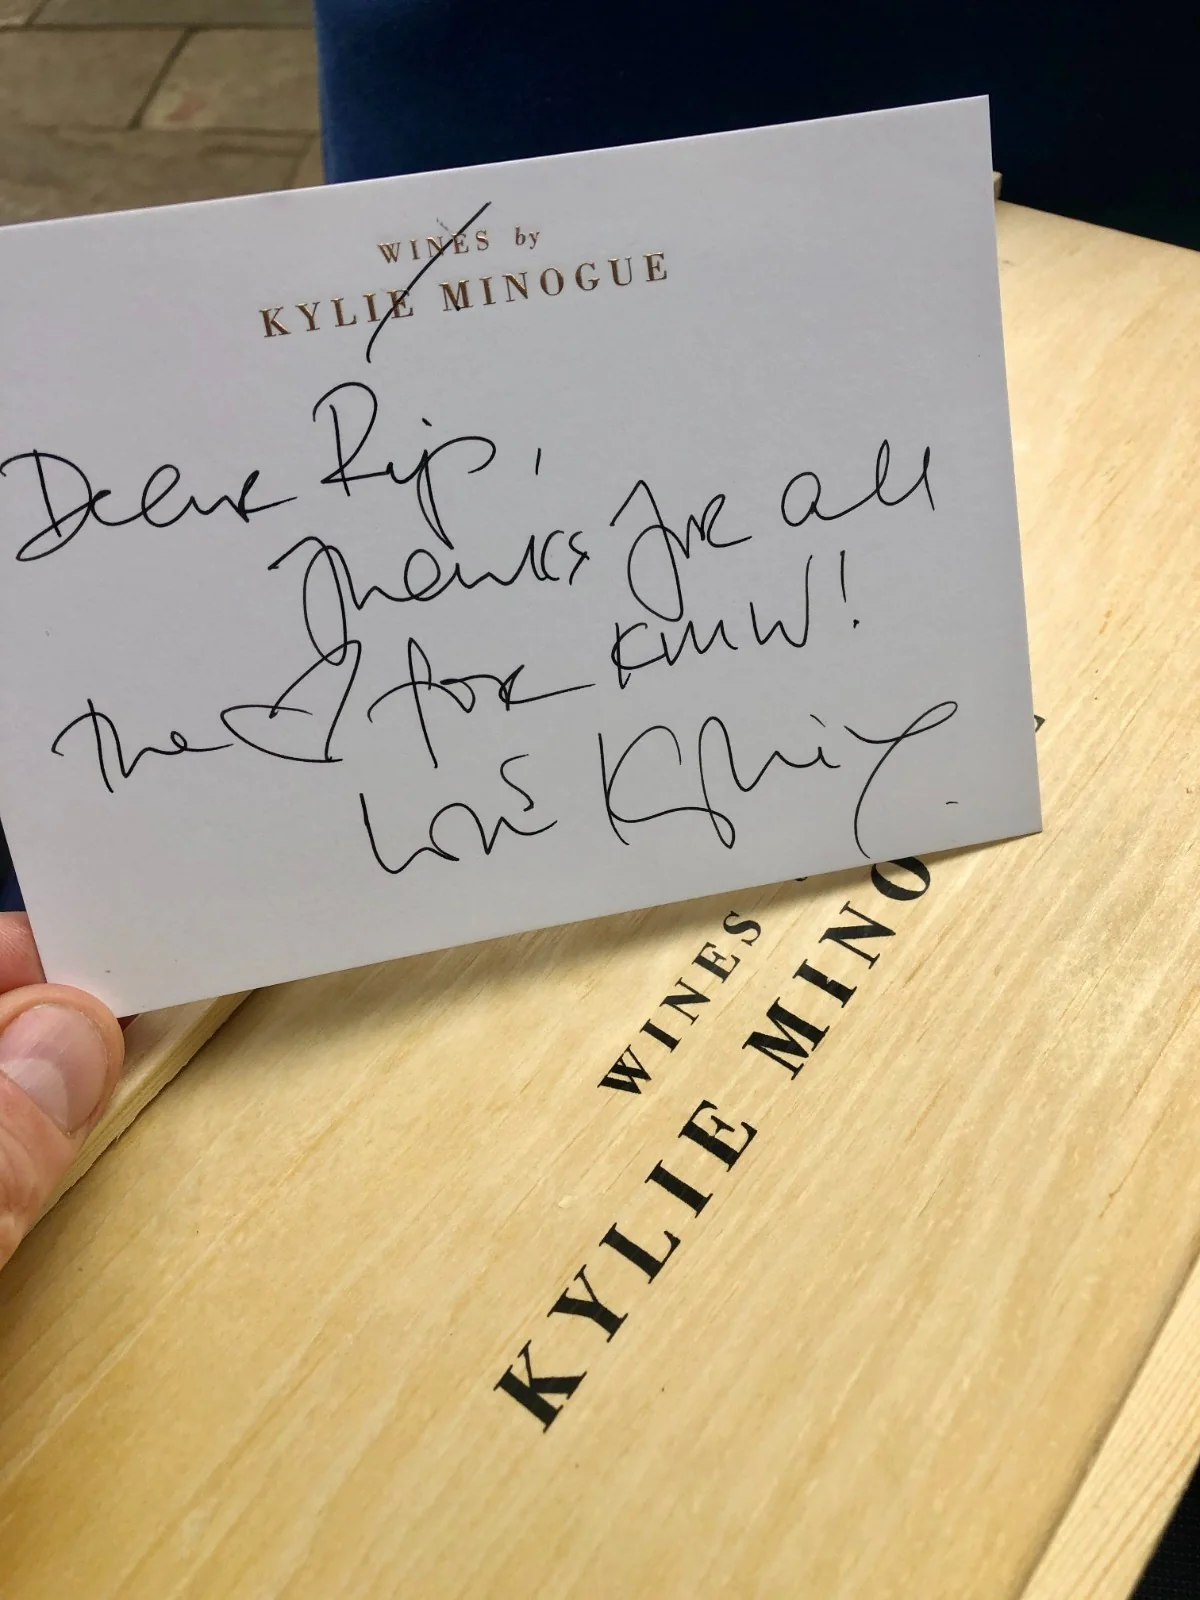 WINES by
KYLIE MINOGUE
Dear Rip,
Thanks for all
the ♡ for KMW!
Love Kylie
WINES
KYLIE MINO